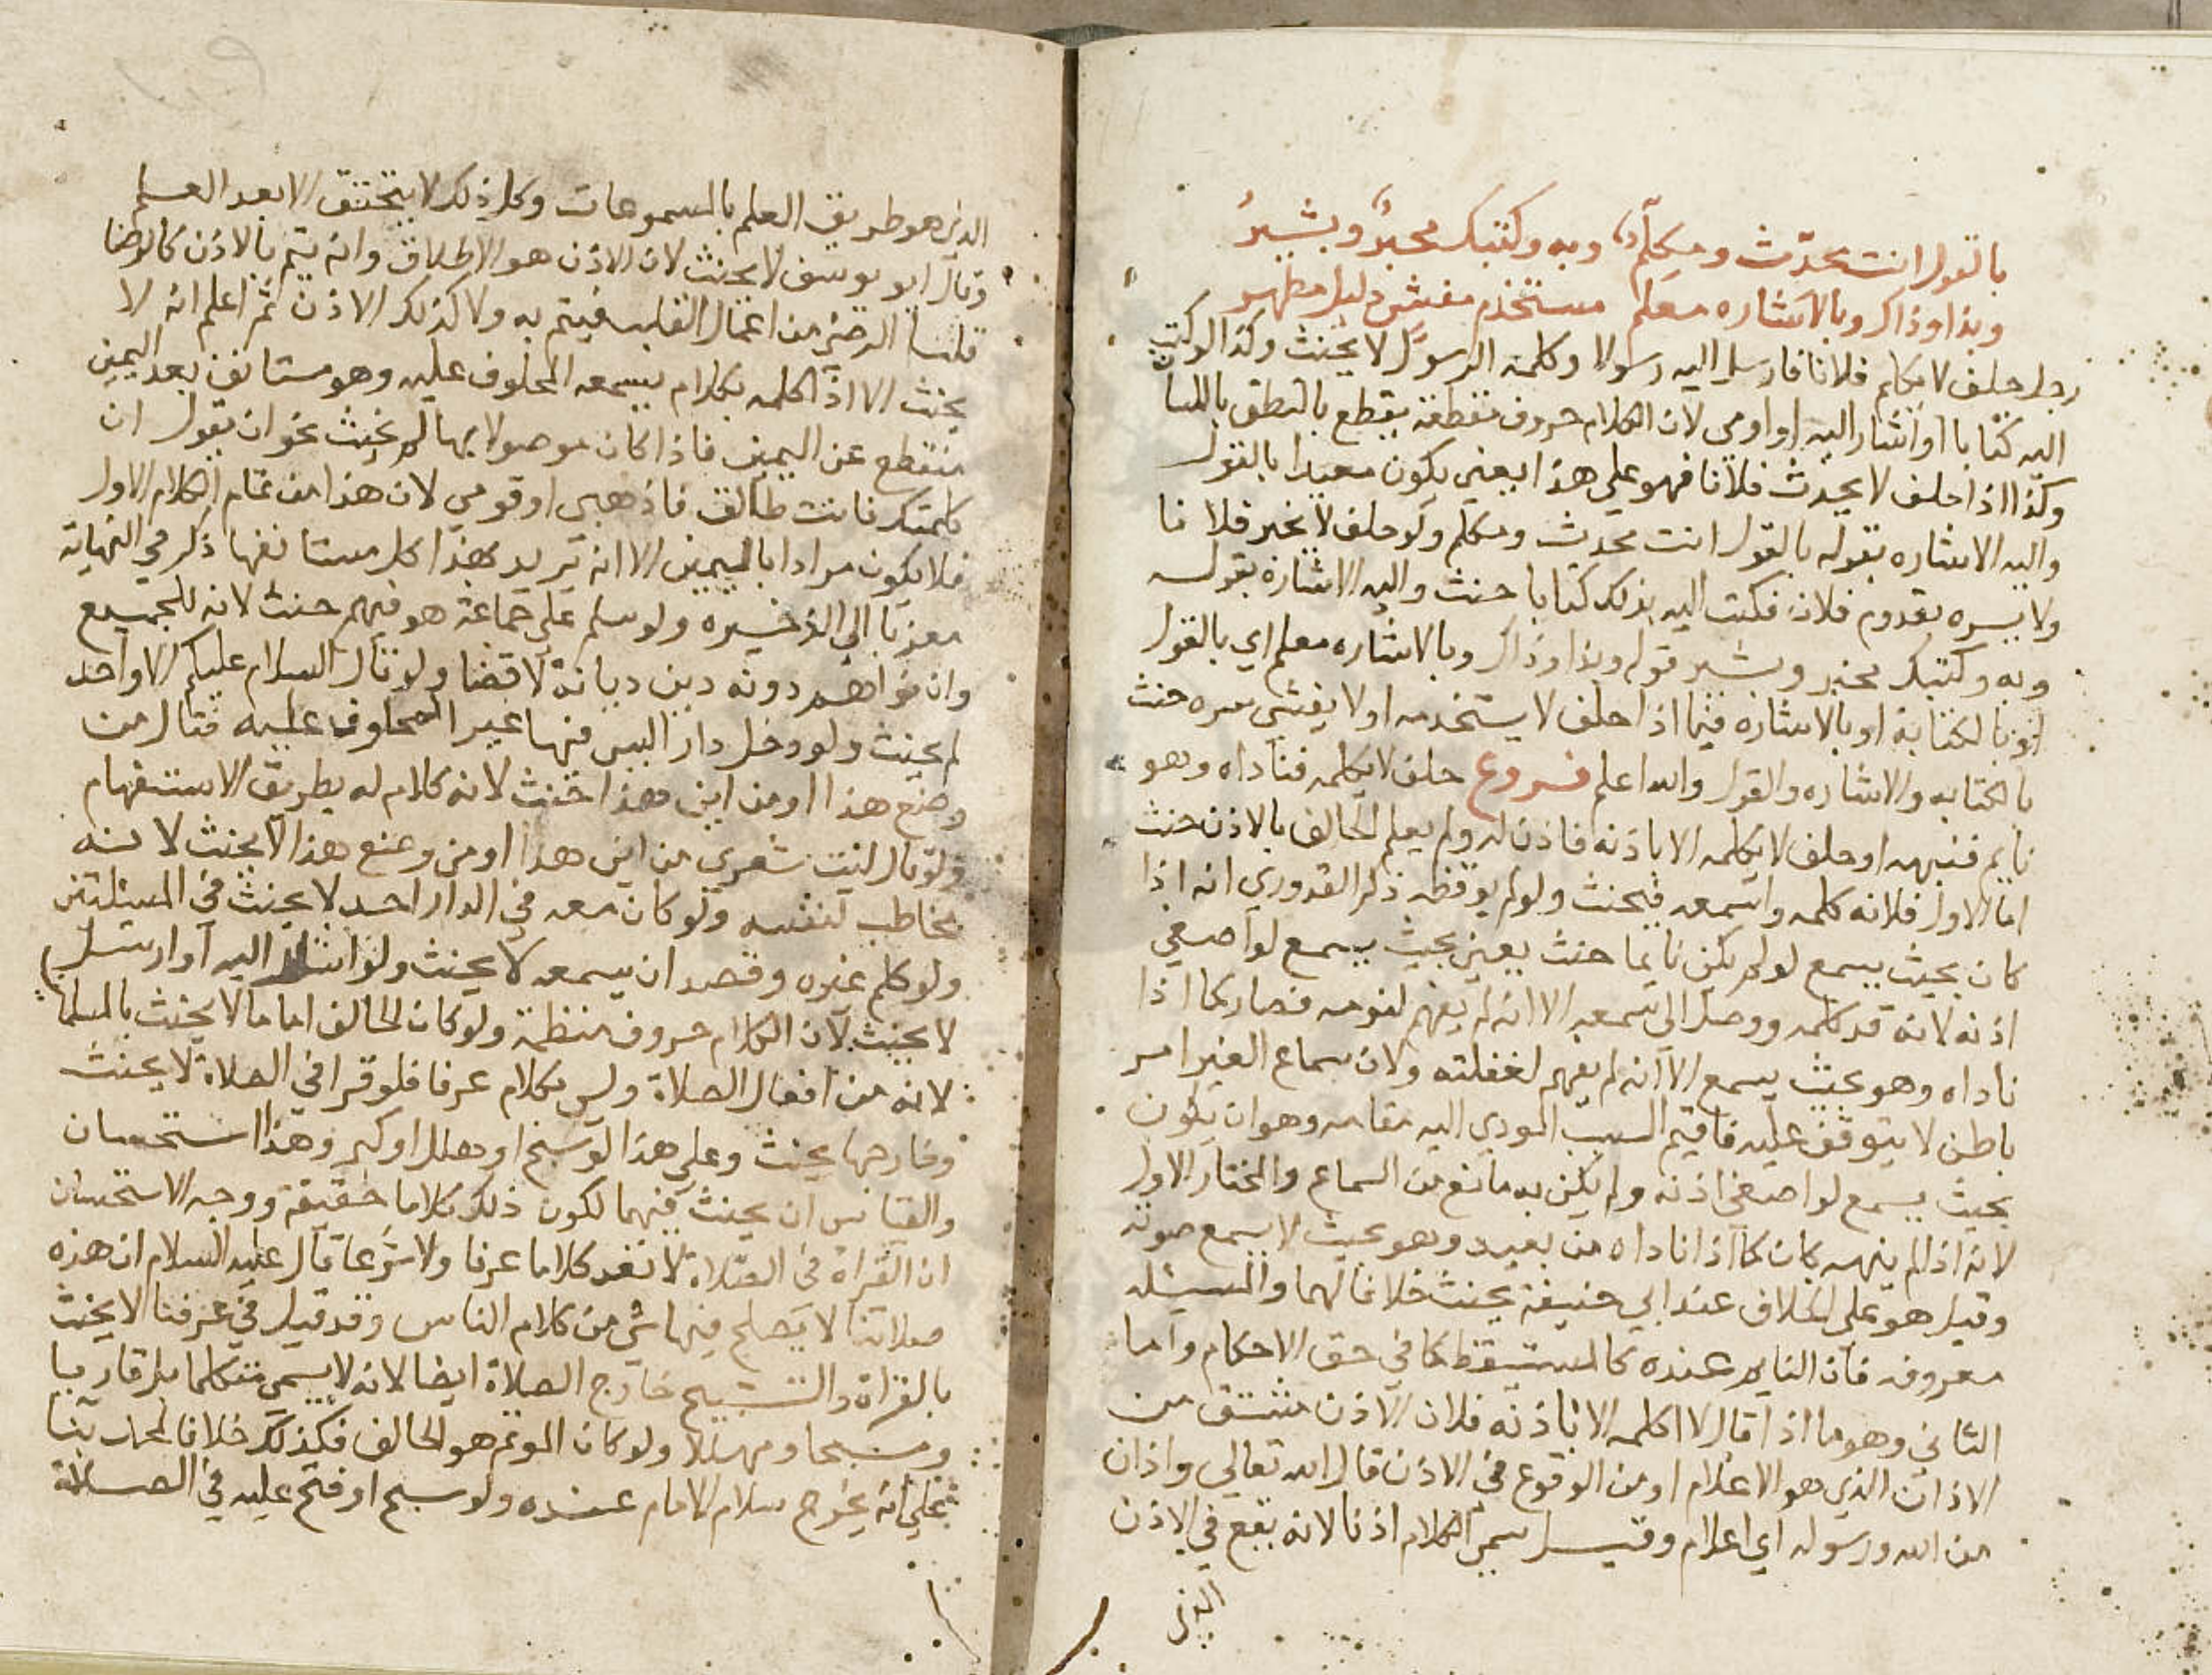 بالقول انت محدّث ومكلّم وبه وكتبك مخبر وبشير
وبذا وذاكر وبالاشاره معلم مستخدم مفش دليل مظهر
رجل حلف لا يكلم فلانا فارسل اليه رسولا وكلمه الرسول لا يحنث وكذا لو كتب
اليه كتابا او اشار اليه او اومي لان الكلام حروف مقطعة يقطع بالنطق باللسان
وكذا اذا حلف لا يحدث فلانا فهو علي هذا يعني يكون مقيدا بالقول
واليه الاشاره بقوله بالقول انت محدث ومكلم ولو حلف لا يخبر فلانا
ولا يبشره بقدوم فلان فكتب اليه بذلك كتابا حنث واليه الاشارة بقوله
وبه وكتبك مخبر وبشير قوله وبذا وذاكر وبالاشاره معلم اي بالقول
او بالكتابة او بالاشارة فيما اذا حلف لا يستخدمه او لا يفشي سره حنث
بالكتابه والاشاره والقول والله اعلم فروع حلف لا يكلمه فناداه وهو
نايم فنبهه او حلف لا يكلمه الا باذنه فاذن له ولم يعلم الحالف بالاذن حنث
اما الاول فلانه كلمه واسمعه فيحنث ولو لم يوقظه ذكر القدوري انه اذا
كان بحيث يسمع لو لم يكن نايما حنث يعني بحيث يسمع لو اصغي
اذنه لانه قد كلمه ووصل الي سمعه الا انه لم يفهم لنومه فصار كما اذا
ناداه وهو بحيث يسمع الا انه لم يفهم لغفلته ولان سماع الغير امر
باطن لا يتوقف عليه فاقيم السبب المودي اليه مقامه وهو ان يكون
بحيث يسمع لو اصغي اذنه ولم يكن به مانع من السماع والمختار الاول
لانه اذا لم ينبهه كان كما اذا ناداه من بعيد وهو بحيث لا يسمع صوته
وقيل هو علي الخلاف عند ابي حنيفة يحنث خلافا لهما والمسيله
معروفه فان النايم عنده كالمستيقظ كما في حق الاحكام واما
الثاني وهو ما اذا قال لا اكلمه الا باذنه فلان الاذن مشتق من
الاذان الذي هو الاعلام او من الوقوع في الاذن قال الله تعالي واذان
من الله ورسوله اي اعلام وقيل سمي الكلام اذنا لانه يقع في الاذن
الذي
الذي هو طريق العلم بالمسموعات وكل ذلك لا يتحقق الا بعد العلم
وقال ابو يوسف لا يحنث لان الاذن هو الاطلاق وانه يتم بالاذن كالرضا
قلنا الرضي من اعمال القلب فيتم به ولا كذلك الاذن ثم اعلم انه لا
يحنث الا اذا كلمه بكلام يسمعه المحلوف عليه وهو مستانف بعد اليمين
منقطع عن اليمين فاذا كان موصولا بها لم يحنث نحو ان يقول ان
كلمتك فانت طالق فاذهبي او قومي لان هذا من تمام الكلام الاول
فلا يكون مرادا باليمين الا انه يريد بهذا كلاما مستانفها ذكره في النهاية
معزيا الي الذخيره ولو سلم علي جماعة هو فيهم حنث لانه للجميع
وان نواهم دونه دين ديانة لا قضا ولو قال السلام عليكم الا واحد
لم يحنث ولو دخل دار اليس فيها غير المحلوف عليه فقال من
وضع هذا او من اين هذا حنث لانه كلام له بطريق الاستفهام
ولو قال ليت شعري من اين هذا او من وضع هذا لا يحنث لانه
مخاطب لنفسه ولو كان معه في الدار احد لا يحنث في المسيلتين
ولو كلم غيره وقصد ان يسمعه لا يحنث ولو اشار اليه او ارسل
لا يحنث لان الكلام حروف منظمة ولو كان الحالف اماما لا يحنث بالسلام
لانه من افعال الصلاة وليس بكلام عرفا فلو قرا في الصلاة لا يحنث
وخارجها يحنث وعلي هذا لو سبح او هلل او كبر وهذا استحسان
والقياس ان يحنث فيهما لكون ذلك كلاما حقيقة ووجه الاستحسان
ان القراة في الصلاة لا تعد كلاما عرفا ولا شرعا قال عليه السلام ان هذه
صلاتنا لا يصلح فيها شي من كلام الناس وقد قيل في عرفنا لا يحنث
بالقراة والتسبيح خارج الصلاة ايضا لانه لا يسمي متكلما بل قاريا
ومسبحا ومهللا ولو كان الموتم هو الحالف فكذلك خلافا لمحمد بنا
علي انه يخرج بسلام الامام عنده ولو سبح او فتح عليه في الصلاة